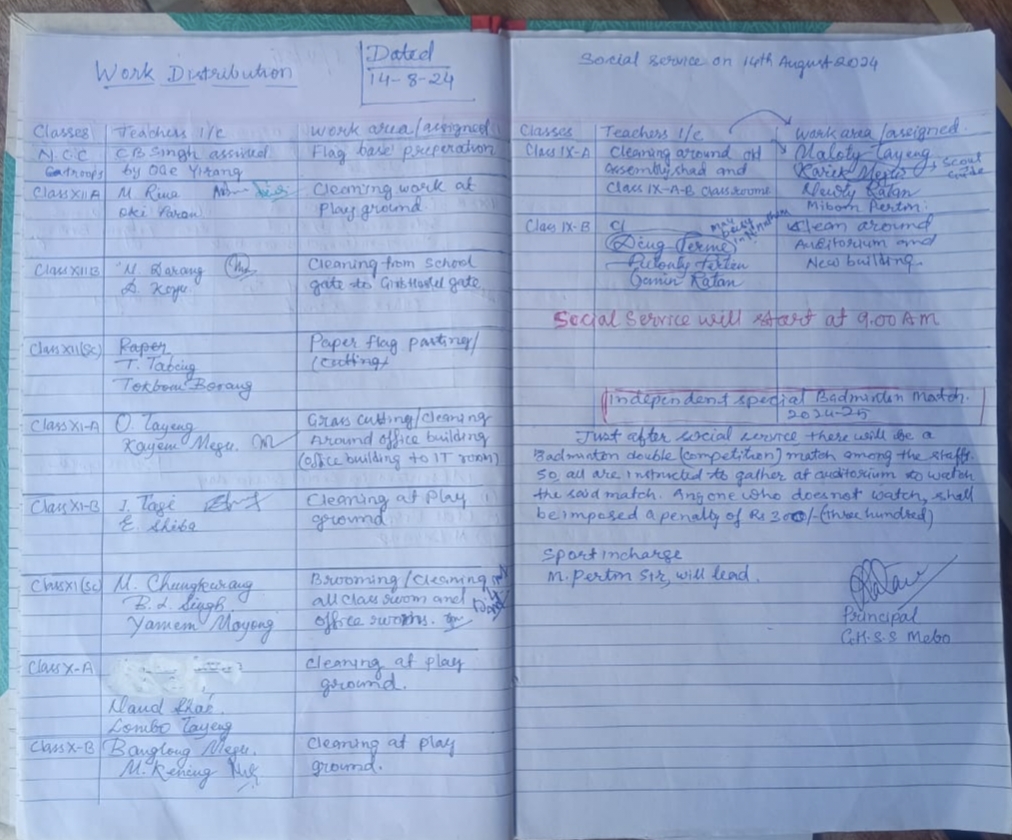 Work Distribution
Dated
14-8-24
Classes Teachers I/c Work area/assigned
N.C.C CB Singh assisted Flag base preperation
Ca troops by Oge Yirang
Class XII A M. Rina Cleaning work at
Oki Parau Play ground
Class XII B N. Darang Cleaning from school
D. Koyu gate to Girls Hostel gate
Class XII (Sc) Raper Paper flag pasting/
T. Tabing (cutting)
Tokbom Borang
Class XI-A O. Tayeng Grass cutting/cleaning
Kayem Megu. Around office building
(office building to IT room)
Class XI-B J. Tagi Cleaning at play
E. Shiba ground
Class XI (Sc) M. Chungkarang Brooming/cleaning
B. L. Singh all class room and
Yamem Moyong office rooms.
Class X-A cleaning at play
ground.
Lombo Tayeng
Class X-B Banglong Megu. cleaning at play
M. Kening ground.
Social service on 14th August 2024
Classes Teachers I/c Work area/assigned.
Class IX-A Cleaning around old Maloty Tayeng
assembly shad and Karik Megu Scout
Guide
Class IX-A-B Class rooms Newly Ratan
Mibom Pertin.
Class IX-B Cl clean around
Ding Terme Auditorium and
New building.
Gamin Ratan
Social Service will start at 9.00 AM
Independent special Badminton Match.
2024-25
Just after social service there will be a
Badminton double (competition) match among the staffs.
So all are instructed to gather at auditorium to watch
the said match. Any one who does not watch, shall
be imposed a penalty of Rs 300/- (three hundred)
Sport incharge
M. Pertin Sir, will lead.
Principal
G.H.S.S Mebo